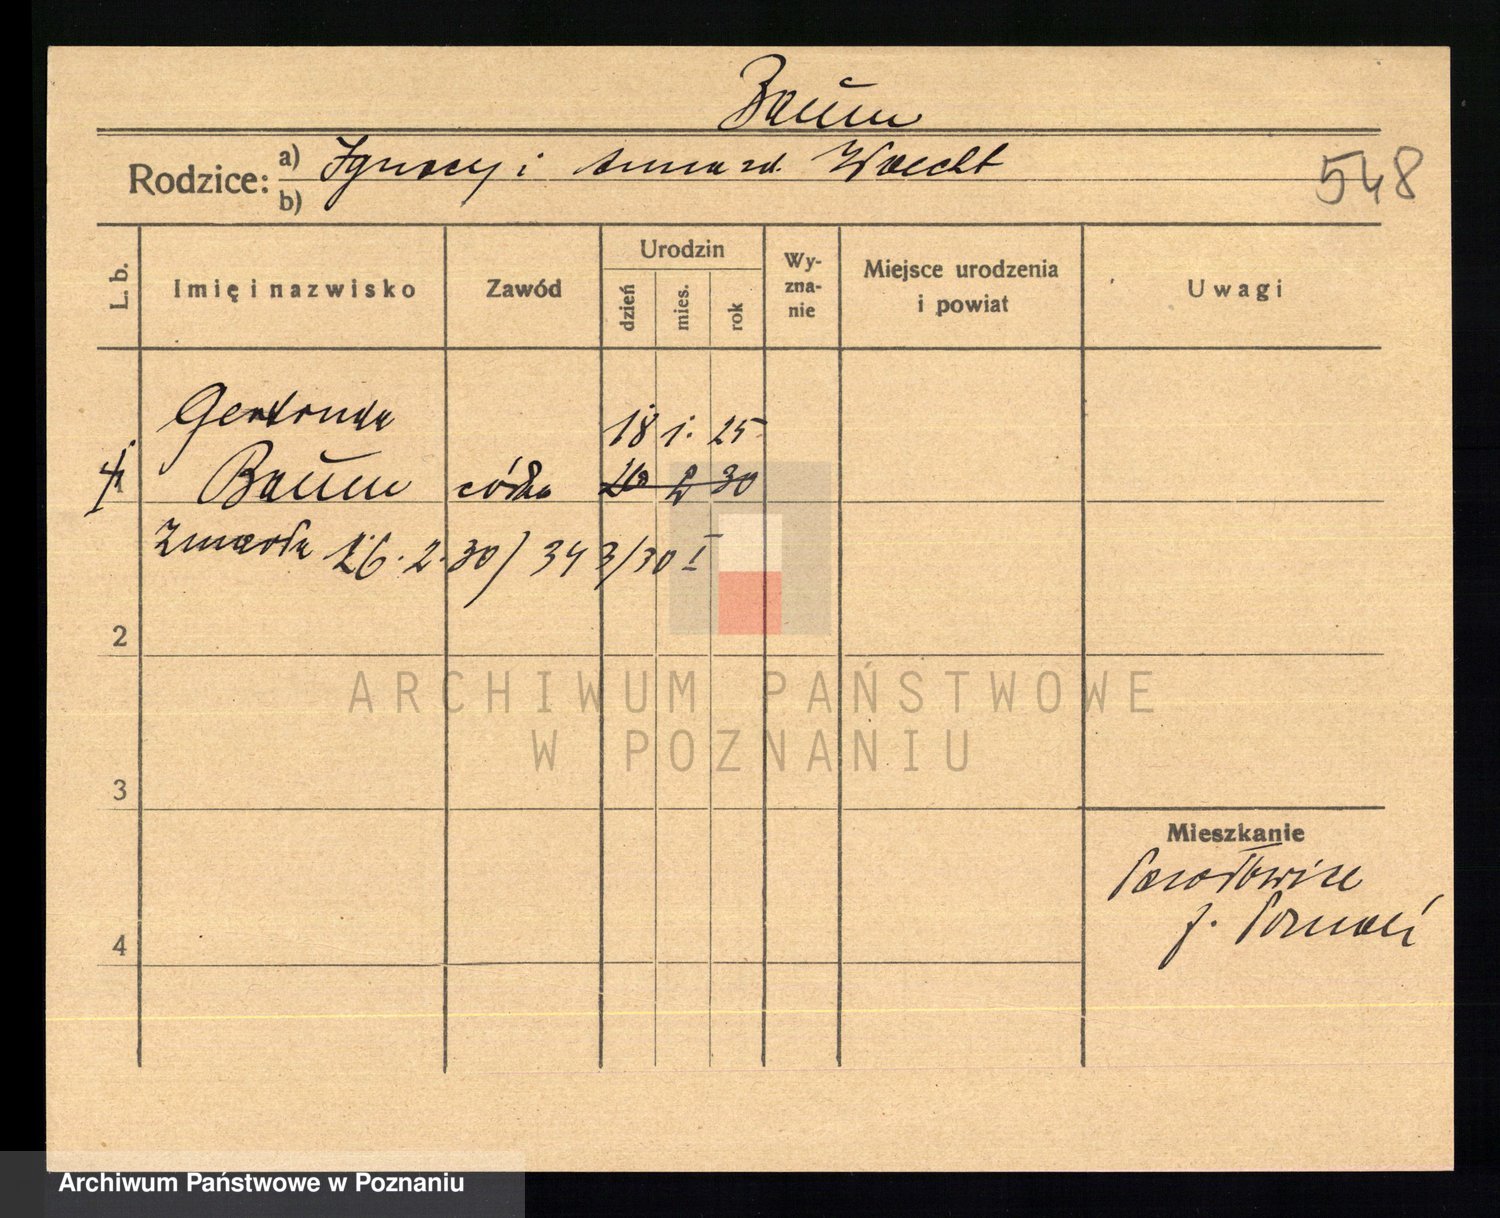 Baum
Rodzice: a) Ignacy i Anna zd. Waecht
b)
548
L. b. Imię i nazwisko Zawód Urodzin dzień mies. rok Wy-zna-nie Miejsce urodzenia i powiat Uwagi
Gertruda 18 1. 25
1 Baum córka 26 2 30
Zmarła 26. 2. 30 / 343/30 I
2
ARCHIWUM PAŃSTWOWE
W POZNANIU
3
Mieszkanie
p. Poznań
4
Archiwum Państwowe w Poznaniu